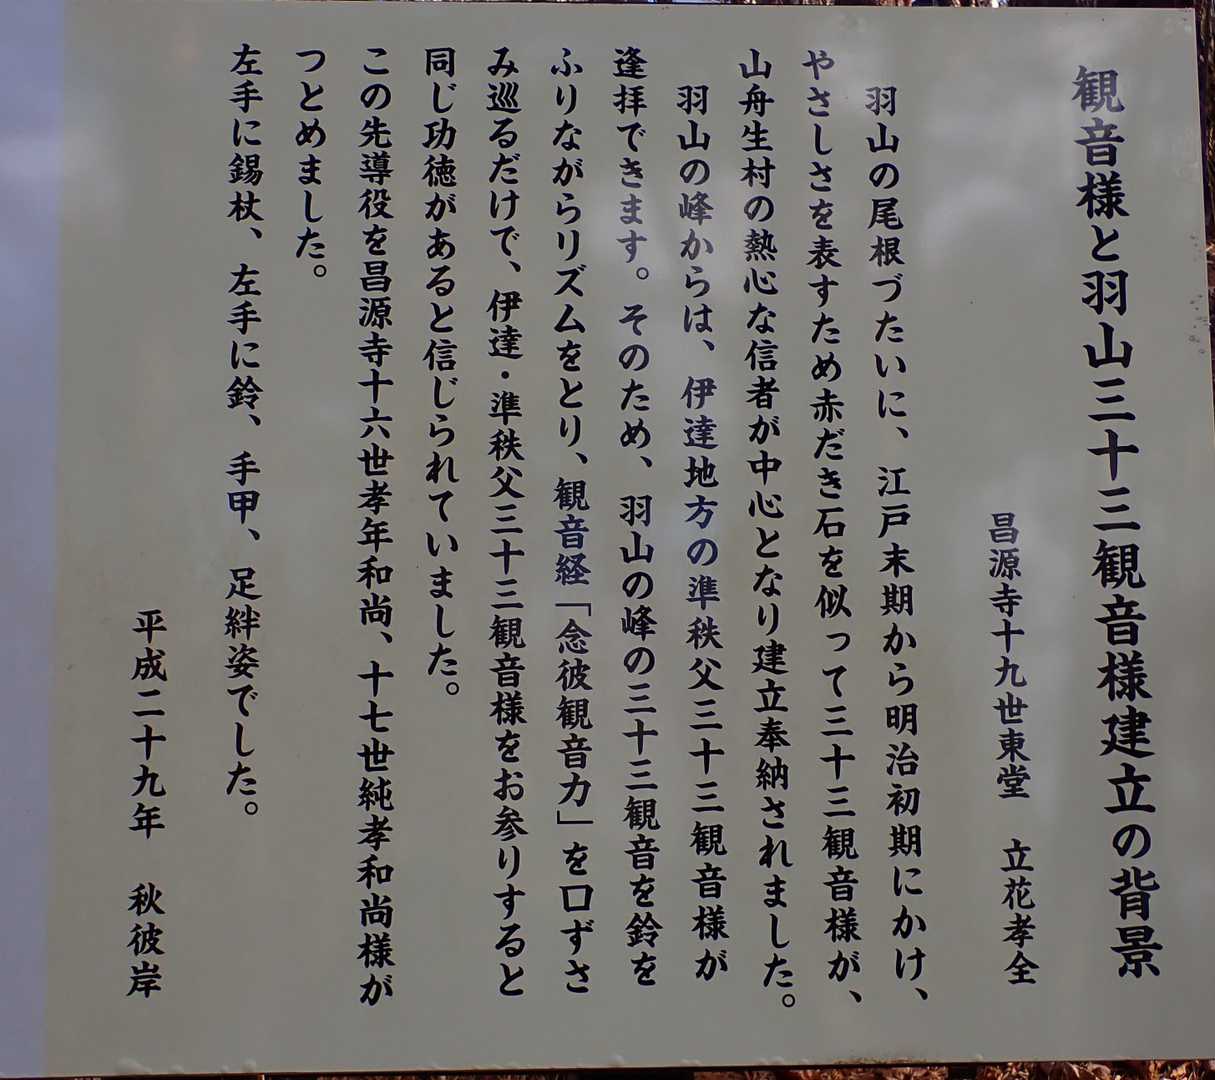 観音様と羽山三十三観音様建立の背景
昌源寺十九世東堂　立花孝全
羽山の尾根づたいに、江戸末期から明治初期にかけ、
やさしさを表すため赤だき石を似って三十三観音様が、
山舟生村の熱心な信者が中心となり建立奉納されました。
羽山の峰からは、伊達地方の準秩父三十三観音様が
逢拝できます。そのため、羽山の峰の三十三観音を鈴を
ふりながらリズムをとり、観音経「念彼観音力」を口ずさ
み巡るだけで、伊達・準秩父三十三観音様をお参りすると
同じ功徳があると信じられていました。
この先導役を昌源寺十六世孝年和尚、十七世純孝和尚様が
つとめました。
左手に錫杖、左手に鈴、手甲、足絆姿でした。
平成二十九年　秋彼岸